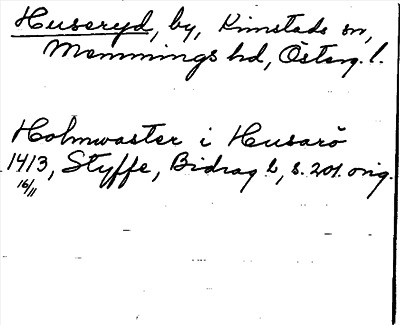 Huseryd, by, Kimstads sn,
Memmings hd, Österg. l.
Holmwaster i Husarö
1413, Styffe, Bidrag 2, s. 201. orig.
16/11